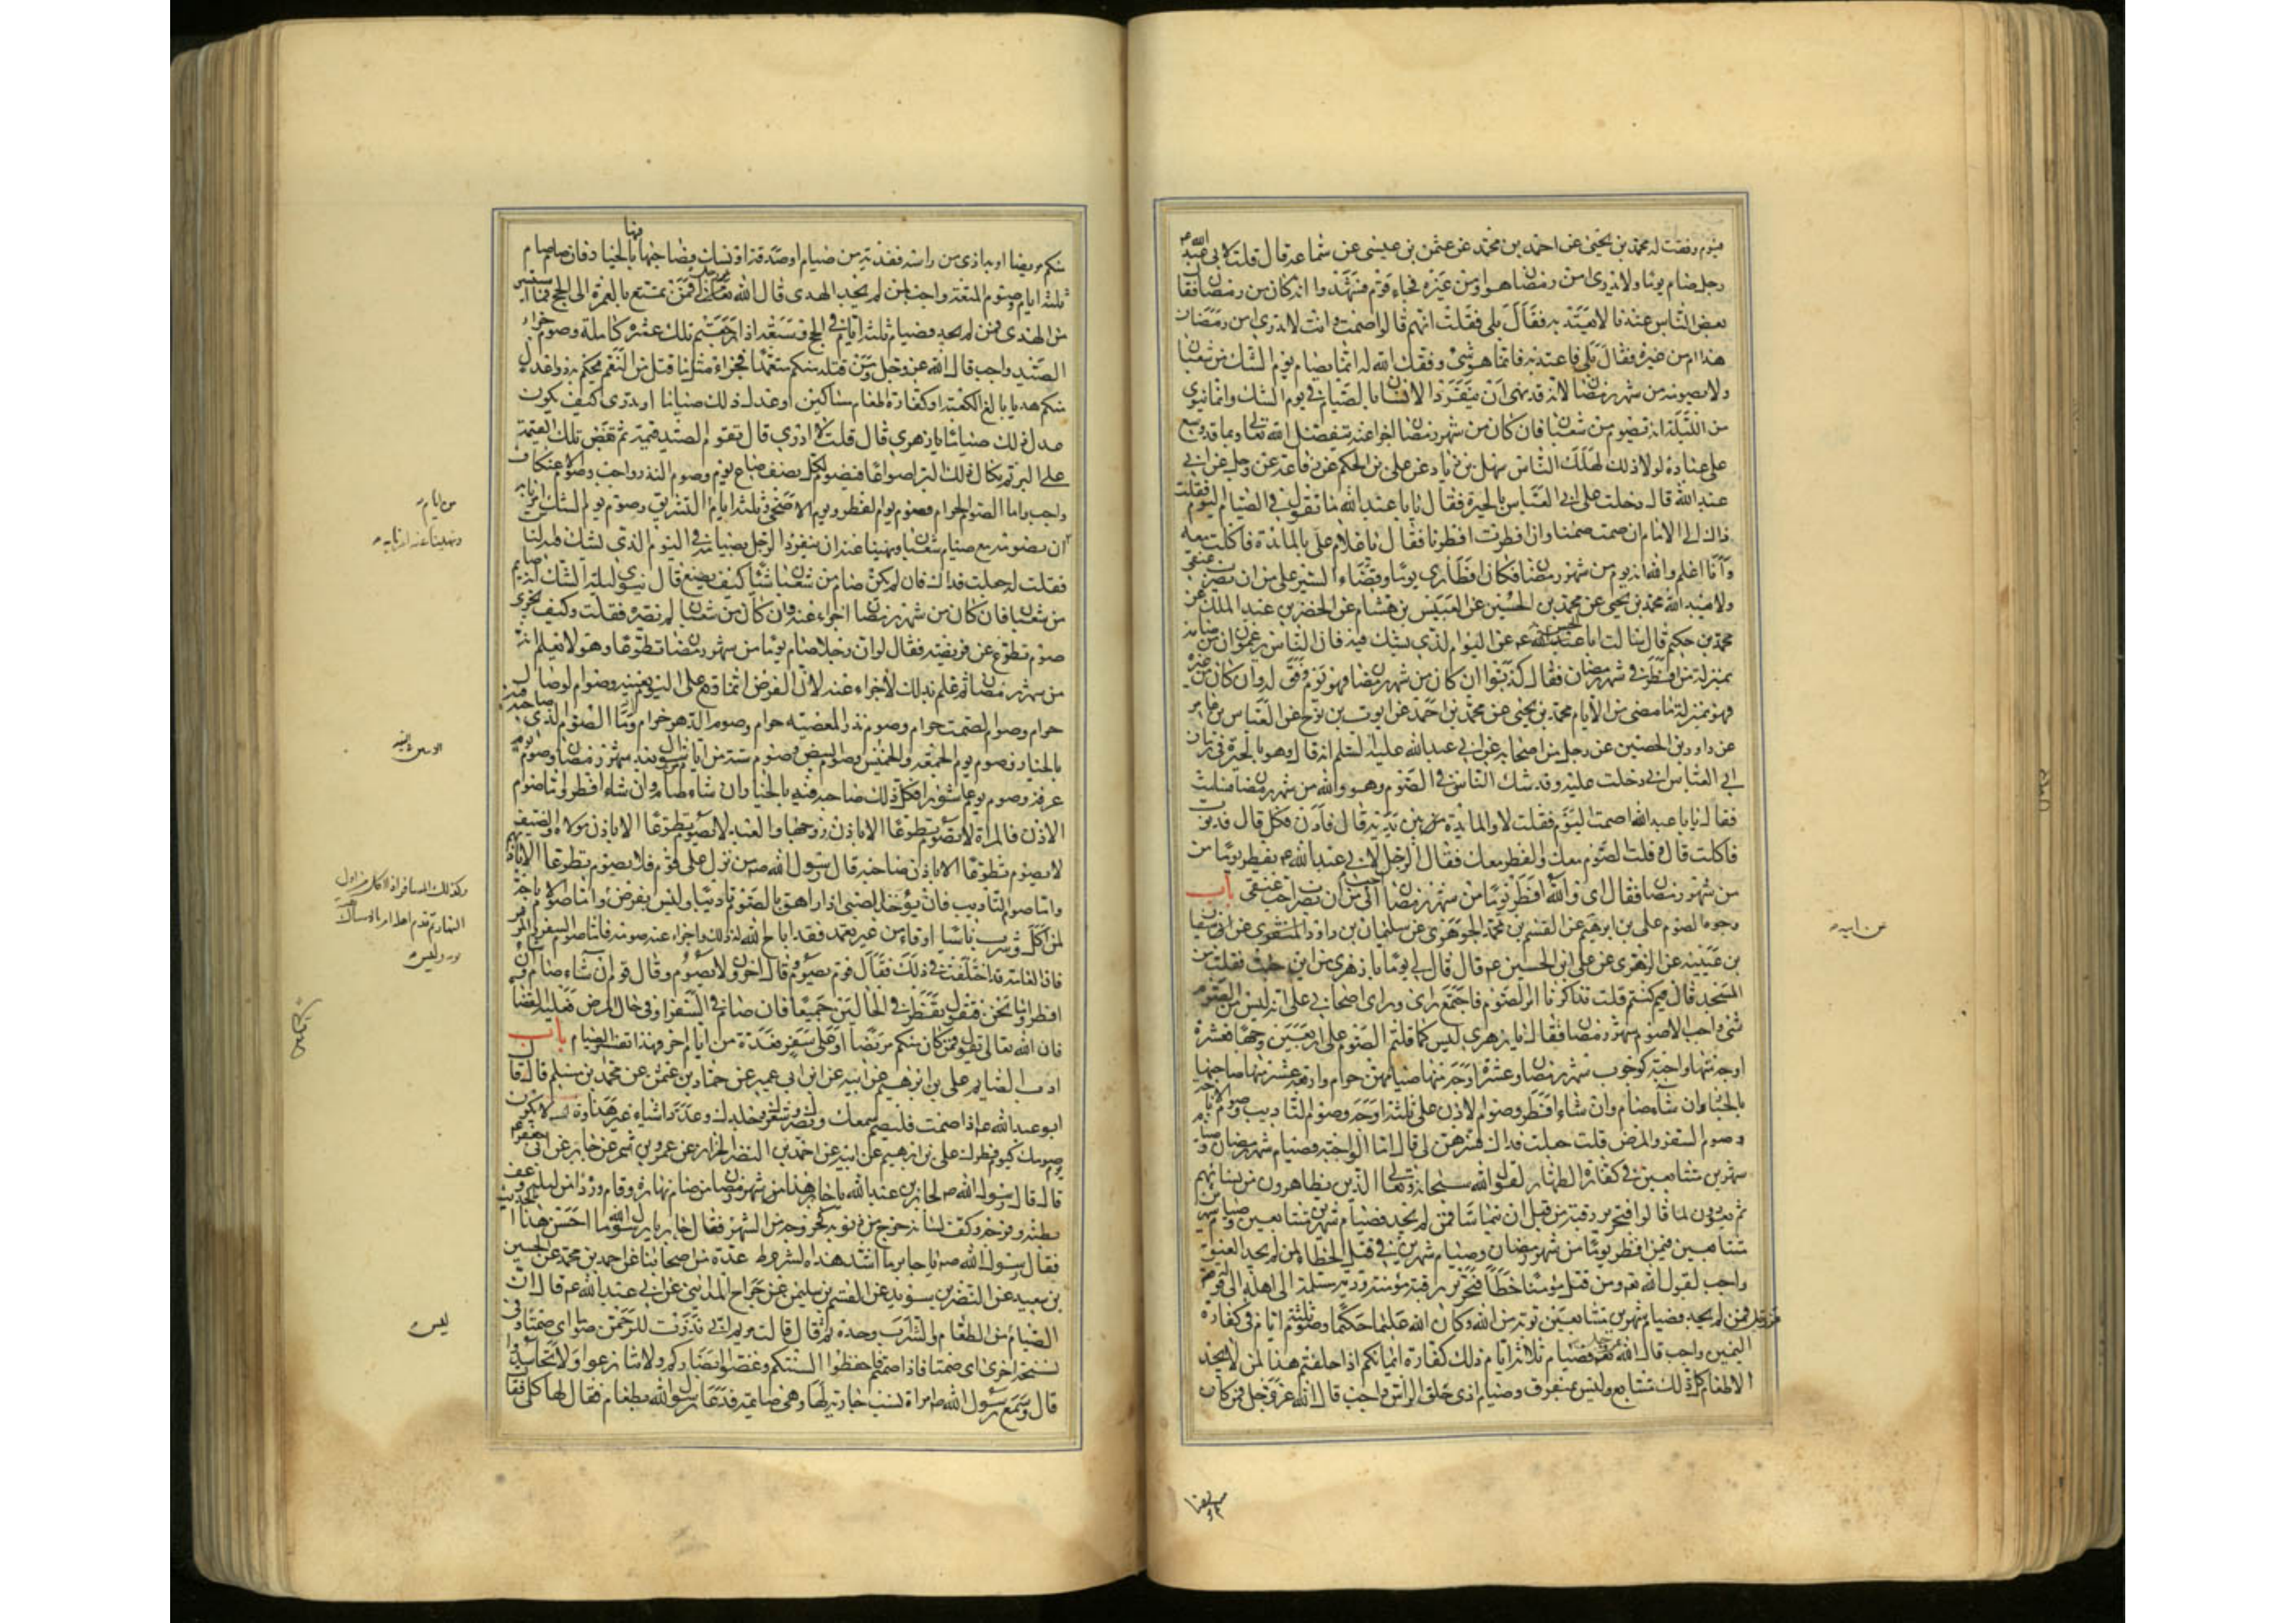 فيوم وفقت له محمد بن يحيى عن احمد بن محمد عن عثمن بن عيسى عن سماعه قال قلت لابى عبد الله ع
رجل صام يوما ولا يدرى امن رمضان هو او من غيره فجاء قوم فشهدوا انه كان من رمضان فقال
بعض الناس عندنا لا يعتد به فقال بلى فقلت انهم قالوا صمت وانت لا تدرى امن رمضان
هذا ام من غيره فقال بلى فاعتد به فانما هو شئ وفقك الله له انما يصام يوم الشك من شعبان
ولا يصومه من شهر رمضان لانه قد نهى ان ينفرد الانسان بالصيام فى يوم الشك وانما ينوى
من الليلة انه يصوم من شعبان فان كان من شهر رمضان اجزا عنه بتفضل الله تعالى وبما قد وسع
على عباده ولولا ذلك لهلك الناس سهل بن زياد عن على بن الحكم عن رفاعة عن رجل عن ابى
عبد الله قال دخلت على ابى العباس بالحيرة فقال يا با عبد الله ما تقول فى الصيام اليوم فقلت
ذاك الى الامام ان صمت صمنا وان افطرت افطرنا فقال يا غلام على بالمائدة فاكلت معه
وانا اعلم والله انه يوم من شهر رمضان فكان افطارى يوما وقضاءه ايسر على من ان يضرب عنقى
ولا يعبد الله محمد بن يحيى عن محمد بن الحسين عن العبيس بن هشام عن الخضر بن عبد الملك عن
محمد بن حكيم قال سالت ابا الحسن ع عن اليوم الذى يشك فيه فان الناس يزعمون ان من صامه
بمنزلة من افطر فى شهر رمضان فقال كذبوا ان كان من شهر رمضان فهو يوم وفق له وان كان من غيره
فهو بمنزلة ما مضى من الايام محمد بن يحيى عن محمد بن احمد عن ايوب بن نوح عن العباس بن عامر
عن داود بن الحصين عن رجل من اصحابه عن ابى عبد الله عليه السلم انه قال وهو بالحيرة فى زمان
ابى العباس انى دخلت عليه وقد شك الناس فى الصوم وهو والله من شهر رمضان فسلمت
فقال يا با عبد الله اصمت اليوم فقلت لا والمايدة بين يديه قال فادن فكل قال فدنوت
فاكلت قال وقلت الصوم معك والفطر معك فقال الرجل لابى عبد الله ع يفطر يوما من
من شهر رمضان فقال اى والله افطر يوما من شهر رمضان احب الى من ان يضرب عنقى باب
وجوه الصوم على بن ابرهيم عن القسم بن محمد الجوهرى عن سليمان بن داود المنقرى عن سفيان
بن عيينه عن الزهرى عن على ابن الحسين ع قال قال لى يوما يا زهرى من اين جئت فقلت من
المسجد قال فيم كنتم قلت تذاكرنا امر الصوم فاجتمع رايى وراى اصحابى على انه ليس من الصوم
شئ واجب الا صوم شهر رمضان فقال يا زهرى ليس كما قلتم الصوم على اربعين وجها فعشرة
اوجه منها واجبة كوجوب شهر رمضان وعشرة اوجه منها صيامهن حرام واربعة عشر منها صاحبها
بالخيار ان شاء صام وان شاء افطر وصوم الاذن على ثلثة اوجه وصوم التاديب وصوم الاباحة
وصوم السفر والمرض قلت جعلت فداك فسرهن لى قال اما الواجبة فصيام شهر رمضان وصيام
شهرين متتابعين فى كفارة الظهار لقول الله سبحانه وتعالى الذين يظاهرون من نسائهم
ثم يعودون لما قالوا فتحرير رقبة من قبل ان يتماسا فمن لم يجد فصيام شهرين متتابعين وصيام شهرين
متتابعين فيمن افطر يوما من شهر رمضان وصيام شهرين فى قتل الخطاء لمن لم يجد العتق
واجب لقول الله تع ومن قتل مؤمنا خطا فتحرير رقبة مؤمنة ودية مسلمة الى اهله الى قوله
فمن لم يجد فصيام شهرين متتابعين توبة من الله وكان الله عليما حكيما وصوم ثلثة ايام فى كفارة
اليمين واجب قال الله عز وجل فصيام ثلاثة ايام ذلك كفارة ايمانكم اذا حلفتم هذا لمن لا يجد
الاطعام كل ذلك متتابع وليس بمتفرق وصيام اذى حلق الراس واجب قال الله عز وجل فمن كان
عن ابيه
منكم مريضا او به اذى من راسه ففدية من صيام او صدقة او نسك فصاحبها فيها بالخيار فان صام صام
ثلثة ايام وصوم المتعة واجب لمن لم يجد الهدى قال الله عز وجل فمن تمتع بالعمرة الى الحج فما استيسر
من الهدى فمن لم يجد فصيام ثلثة ايام فى الحج وسبعة اذا رجعتم تلك عشرة كاملة وصوم جزاء
الصيد واجب قال الله عز وجل ومن قتله منكم متعمدا فجزاء مثل ما قتل من النعم يحكم به ذوا عدل
منكم هديا بالغ الكعبة او كفارة طعام مساكين او عدل ذلك صياما او تدرى كيف يكون
عدل ذلك صياما يا زهرى قال قلت لا ادرى قال يقوم الصيد قيمة ثم تفض تلك القيمة
على البر ثم يكال ذلك البر اصواعا فيصوم لكل نصف صاع يوم وصوم النذر واجب وصوم الاعتكاف
واجب واما الصوم الحرام فصوم يوم الفطر ويوم الاضحى وثلثة ايام التشريق وصوم يوم الشك امرنا به
ان نصومه مع صيام شعبان ونهينا عنه ان ينفرد الرجل بصيامه فى اليوم الذى يشك فيه الناس
فقلت له جعلت فداك فان لم يكن صام من شعبان شيئا كيف يصنع قال ينوى ليلة الشك انه صايم
من شعبان فان كان من شهر رمضان اجزاء عنه وان كان من شعبان لم يضره فقلت وكيف يجزى
صوم تطوع عن فريضة فقال لو ان رجلا صام يوما من شهر رمضان تطوعا وهو لا يعلم انه
من شهر رمضان ثم علم بذلك لاجزاء عنه لان الفرض انما وقع على اليوم بعينه وصوم الوصال
حرام وصوم الصمت حرام وصوم نذر المعصيه حرام وصوم الدهر حرام واما الصوم الذى صاحبه فيه
بالخيار فصوم يوم الجمعة والخميس وصوم البيض وصوم ستة من ايام شوال بعد شهر رمضان وصوم يوم
عرفة وصوم يوم عاشورا فكل ذلك صاحبه فيه بالخيار ان شاء صام وان شاء افطر واما صوم
الاذن فالمراة لا تصوم تطوعا الا باذن زوجها والعبد لا يصوم تطوعا الا باذن مولاه والضيف
لا يصوم تطوعا الا باذن صاحبه قال رسول الله ص من نزل على قوم فلا يصوم تطوعا الا باذنهم
واما صوم التاديب فان يؤخذ الصبى اذا راهق بالصوم تاديبا وليس بفرض واما صوم الاباحة
لمن اكل وشرب ناسيا او قاء من غير تعمد فقد اباح الله له ذلك واجزاء عنه صومه فاما صوم السفر والمرض
فان العامة قد اختلفت فى ذلك فقال قوم يصوم وقال اخرون لا يصوم وقال قوم ان شاء صام وان شاء
افطر واما نحن فنقول يفطر فى الحالتين جميعا فان صام فى السفر او فى حال المرض فعليه القضاء
فان الله تعالى يقول فمن كان منكم مريضا او على سفر فعدة من ايام اخر فهذا تفسير الصيام باب
ادب الصايم على بن ابرهيم عن ابيه عن ابن ابى عمير عن حماد بن عثمن عن محمد بن مسلم قال قال
ابو عبد الله ع اذا صمت فليصم سمعك وبصرك وشعرك وجلدك وعدد اشياء غير هذا وقال لا يكون
يوم صومك كيوم فطرك على بن ابرهيم عن ابيه عن احمد بن النضر الخزاز عن عمرو بن شمر عن جابر عن ابى جعفر ع
قال قال رسول الله ص لجابر بن عبد الله يا جابر هذا من شهر رمضان من صام نهاره وقام وردا من ليله وعف
بطنه وفرجه وكف لسانه خرج من ذنوبه كخروجه من الشهر فقال جابر يا رسول الله ما احسن هذا الحديث
فقال رسول الله ص يا جابر ما اشد هذه الشروط عدة من اصحابنا عن احمد بن محمد عن الحسين
بن سعيد عن النضر بن سويد عن القسم بن سليمن عن جراح المداينى عن ابى عبد الله ع قال ان
الصيام من الطعام والشراب وحده ثم قال قالت مريم انى نذرت للرحمن صوما اى صمتا وفى
نسخة اخرى اى صمتا فاذا صمتم فاحفظوا السنتكم وغضوا ابصاركم ولا تنازعوا ولا تحاسدوا
قال وسمع رسول الله ص امراة تسب جارية لها وهى صايمة فدعا رسول الله بطعام فقال لها كلى فقالت
من ايام
ونهينا عنه امرنا به
وكذلك المسافر اذا اكل من اول
النهار ثم قدم اهله امر بالامساك
وليس
ليس